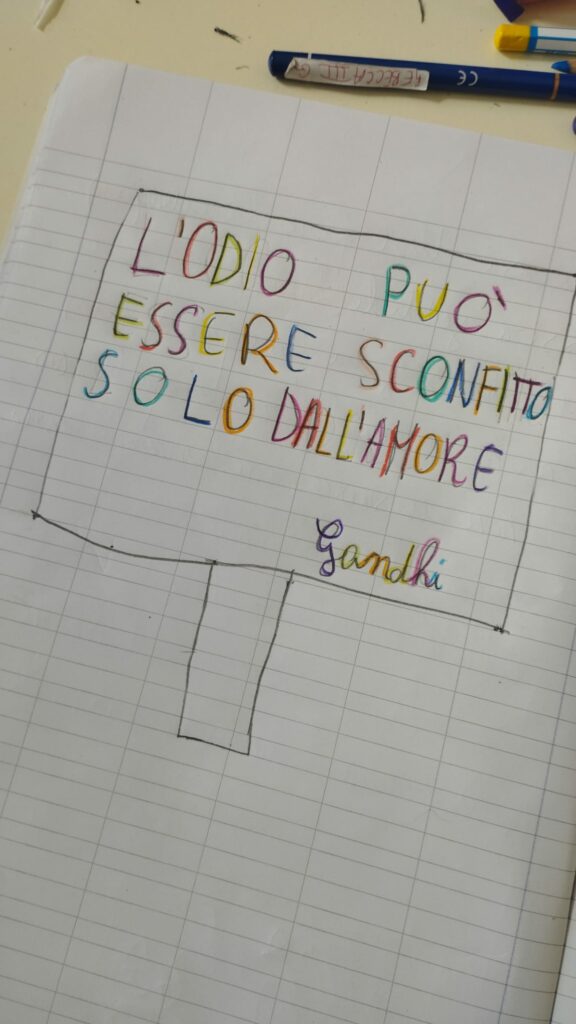 REBECCA III G
CE
L'ODIO PUO'
ESSERE SCONFITTO
SOLO DALL'AMORE
Gandhi